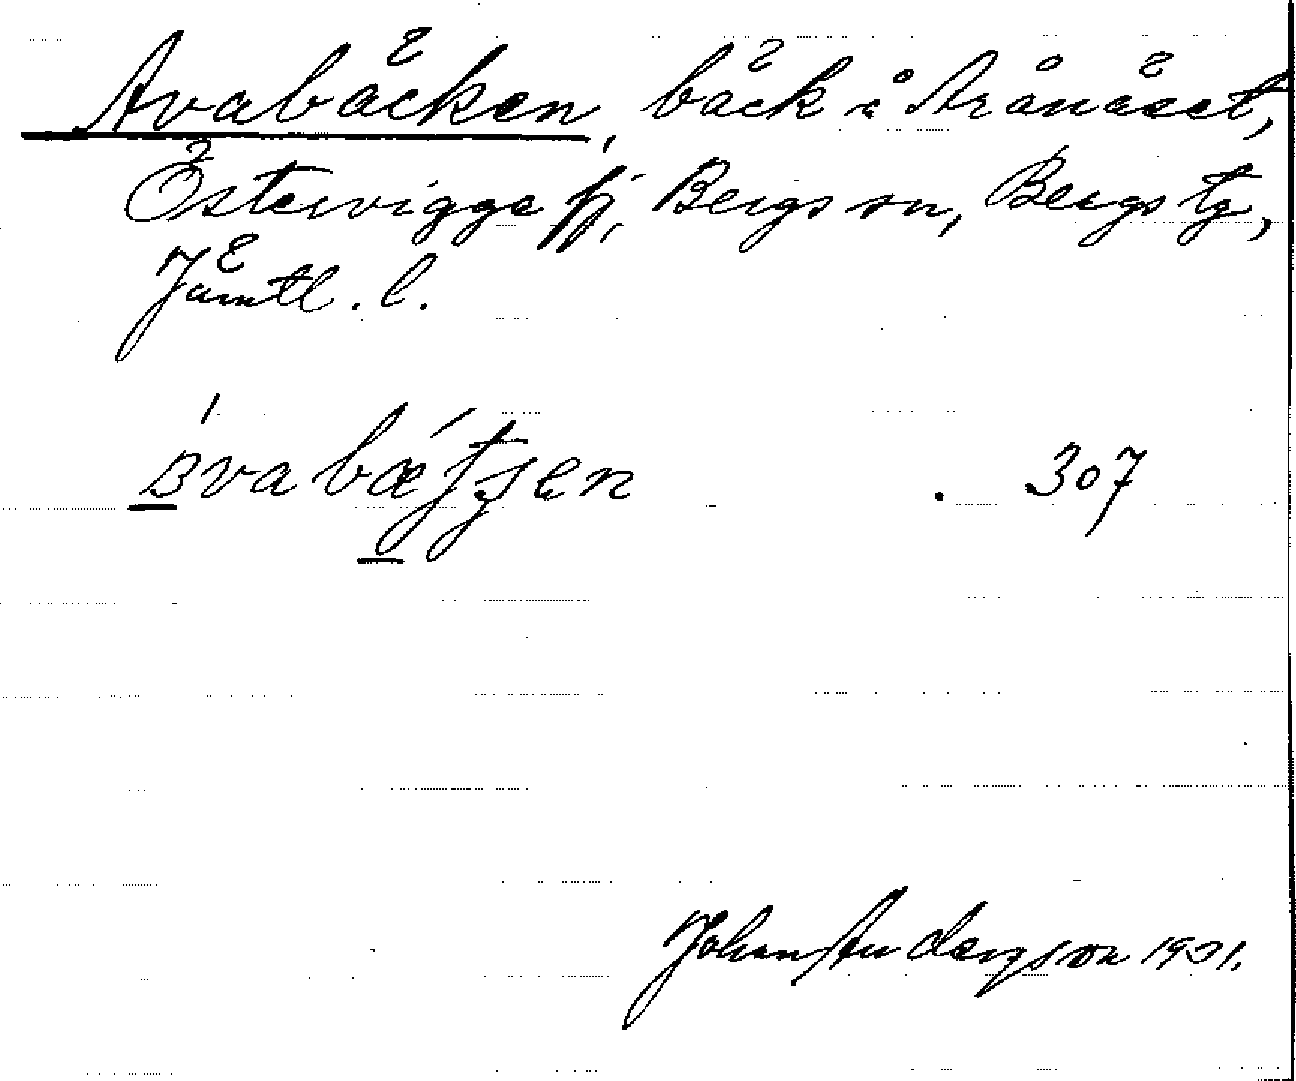 Avabäcken, bäck i Arånäset,
Östervigge fj, Bergs sn, Bergs tg,
Jämtl. l.
307
Johan Anderson 1921.